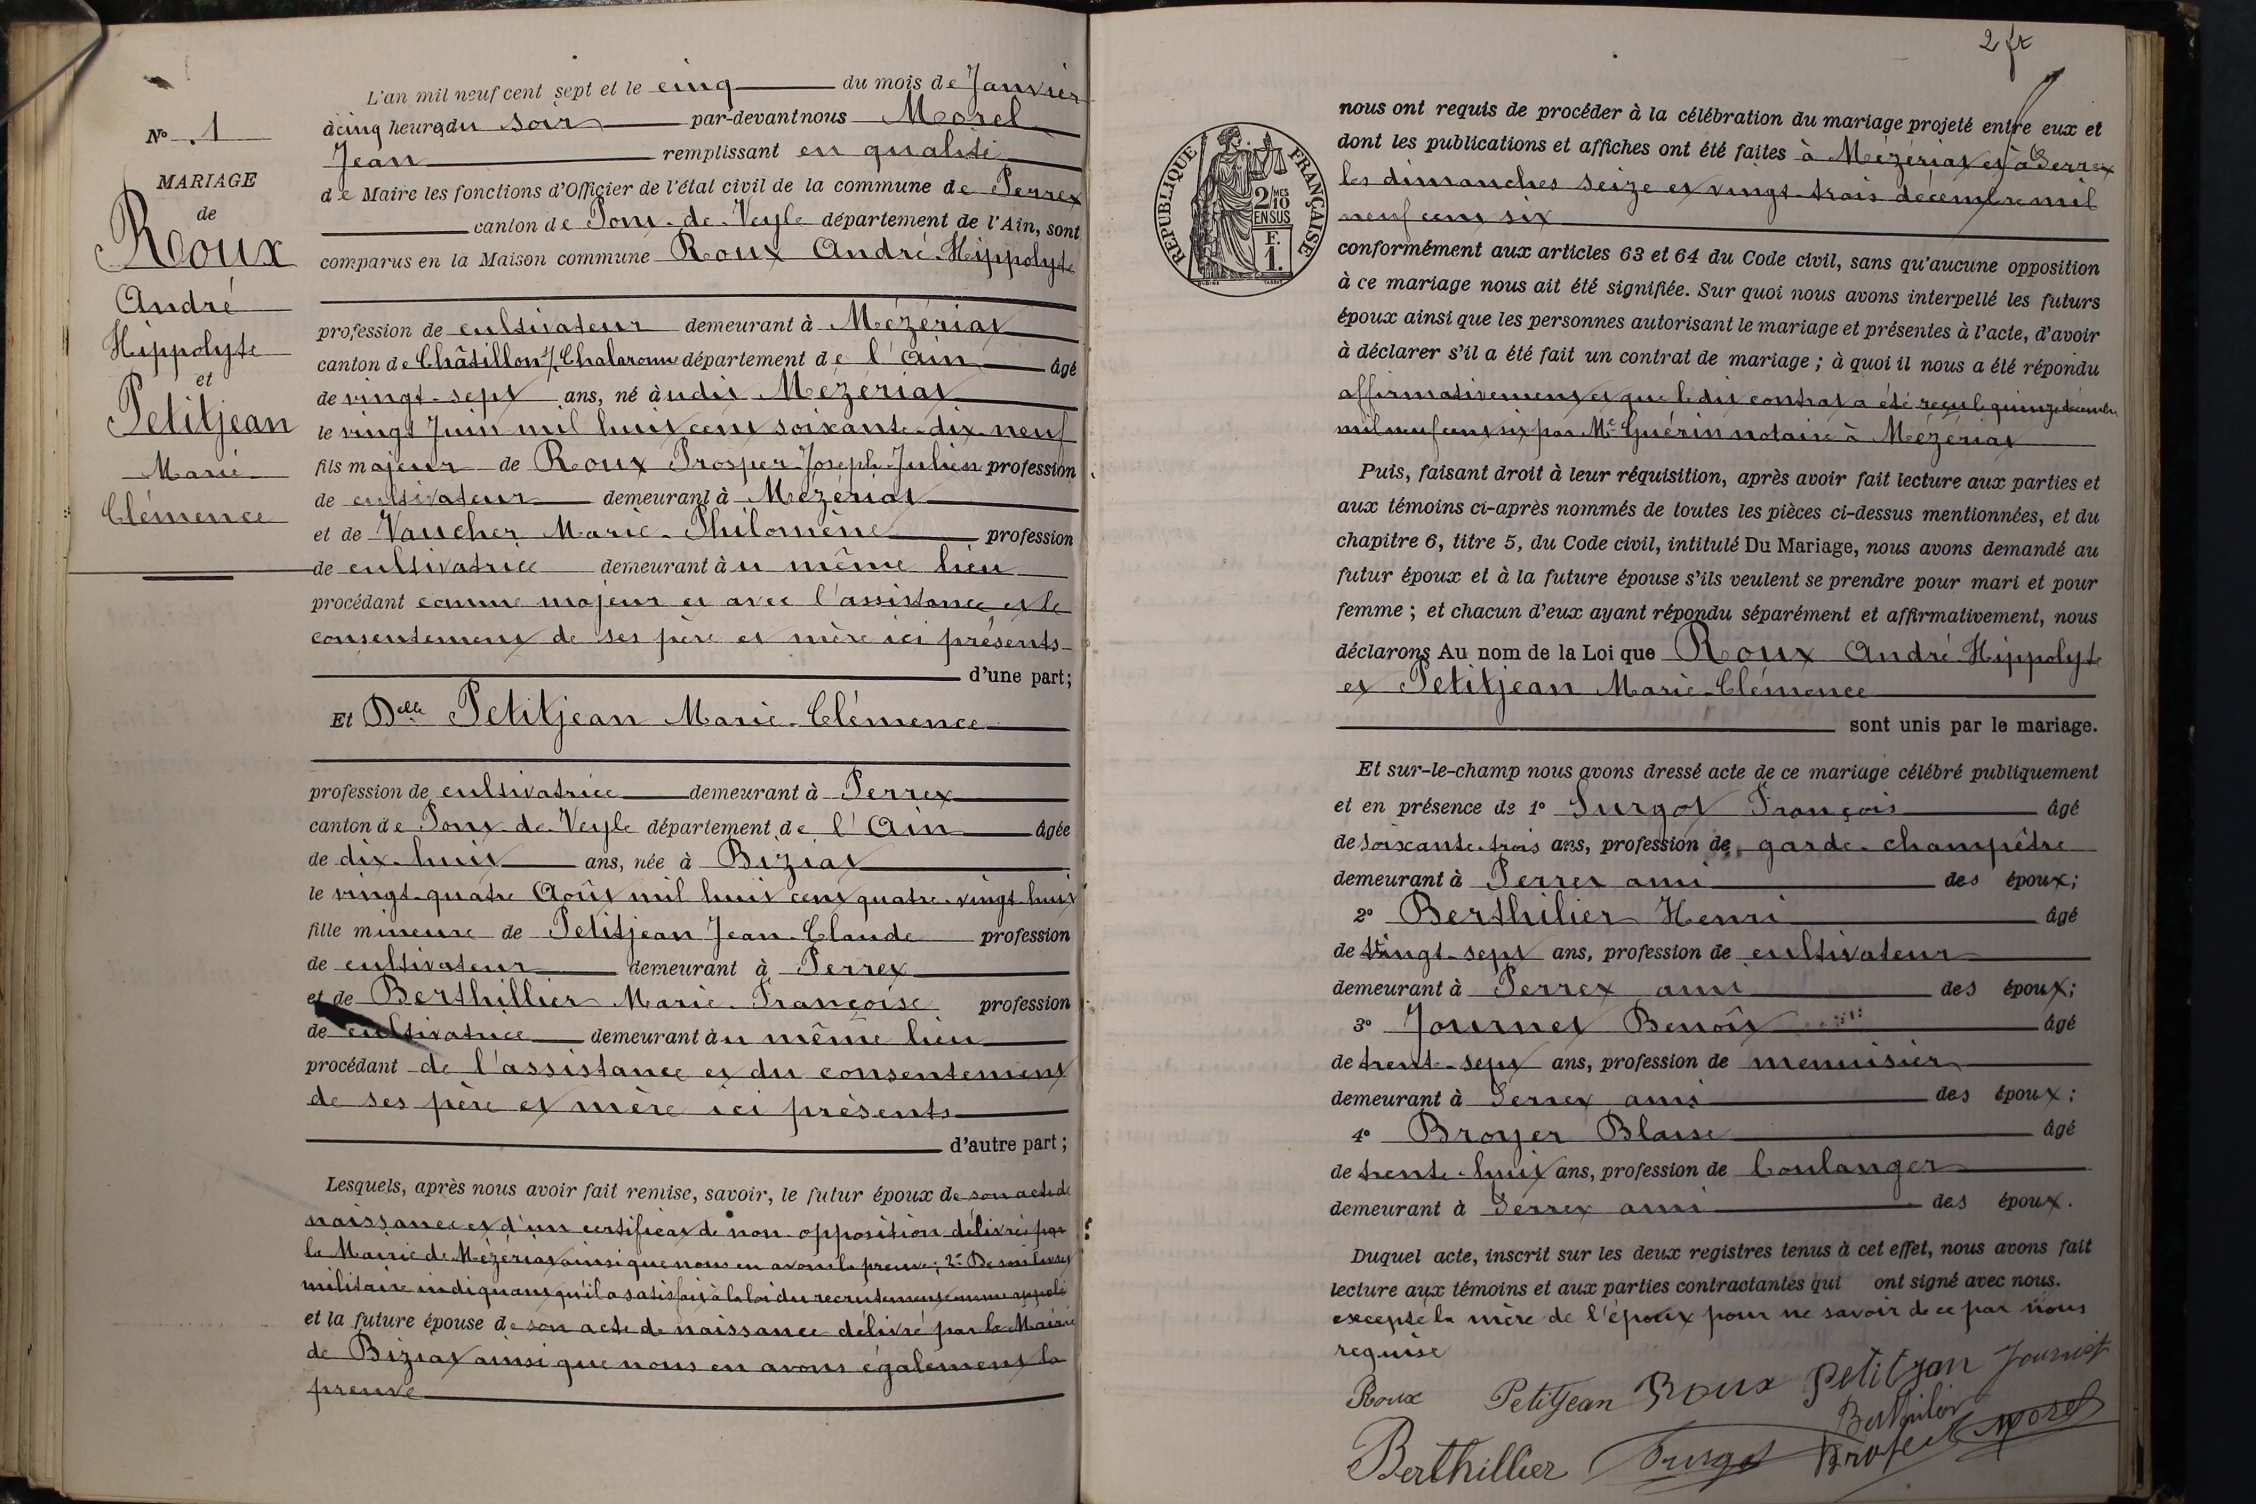 L'an mil neuf cent sept et le cinq du mois de Janvier
à cinq heures du soir par-devant nous Morel
Jean remplissant en qualité
de Maire les fonctions d'Officier de l'état civil de la commune de Perrex
canton de Pont-de-Veyle département de l'Ain, sont
comparus en la Maison commune Roux André-Hippolyte
profession de cultivateur demeurant à Mézériat
canton de Châtillon s/ Chalaronne département de l'Ain âgé
de vingt-sept ans, né à udit Mézériat
le vingt Juin mil huit cent soixante-dix-neuf
fils majeur de Roux Prosper Joseph Julien profession
de cultivateur demeurant à Mézériat
et de Vaucher Marie-Philomène profession
de cultivatrice demeurant à u même lieu
procédant comme majeur et avec l'assistance et le
consentement de ses père et mère ici présents
d'une part;
Et Delle Petitjean Marie-Clémence
profession de cultivatrice demeurant à Perrex
canton de Pont-de-Veyle département de l'Ain âgée
de dix-huit ans, née à Biziat
le vingt-quatre Août mil huit cent quatre-vingt-huit
fille mineure de Petitjean Jean-Claude profession
de cultivateur demeurant à Perrex
et de Berthillier Marie-Françoise profession
de cultivatrice demeurant à u même lieu
procédant de l'assistance et du consentement
de ses père et mère ici présents
d'autre part;
Lesquels, après nous avoir fait remise, savoir, le futur époux de son acte de
naissance et d'un certificat de non opposition délivrés par
la Mairie de Mézériat ainsi que nous en avons la preuve; 2° De son livret
militaire indiquant qu'il a satisfait à la loi du recrutement comme appelé
et la future épouse de son acte de naissance délivré par la Mairie
de Biziat ainsi que nous en avons également la
preuve
N° 1
MARIAGE
de
Roux
André
Hippolyte
et
Petitjean
Marie
Clémence
2 fr
RÉPUBLIQUE FRANÇAISE
2/MES
10
EN SUS
F.
1.
nous ont requis de procéder à la célébration du mariage projeté entre eux et
dont les publications et affiches ont été faites à Mézériat et à Perrex
les dimanches seize et vingt-trois décembre mil
neuf cent six
conformément aux articles 63 et 64 du Code civil, sans qu'aucune opposition
à ce mariage nous ait été signifiée. Sur quoi nous avons interpellé les futurs
époux ainsi que les personnes autorisant le mariage et présentes à l'acte, d'avoir
à déclarer s'il a été fait un contrat de mariage; à quoi il nous a été répondu
affirmativement et que le dit contrat a été reçu le quinze décembre
mil neuf cent six par Me Guérin notaire à Mézériat
Puis, faisant droit à leur réquisition, après avoir fait lecture aux parties et
aux témoins ci-après nommés de toutes les pièces ci-dessus mentionnées, et du
chapitre 6, titre 5, du Code civil, intitulé Du Mariage, nous avons demandé au
futur époux et à la future épouse s'ils veulent se prendre pour mari et pour
femme; et chacun d'eux ayant répondu séparément et affirmativement, nous
déclarons Au nom de la Loi que Roux André-Hippolyte
et Petitjean Marie-Clémence
sont unis par le mariage.
Et sur-le-champ nous avons dressé acte de ce mariage célébré publiquement
et en présence de 1° Surgot François âgé
de soixante-trois ans, profession de garde-champêtre
demeurant à Perrex ami des époux;
2° Berthilier Henri âgé
de vingt-sept ans, profession de cultivateur
demeurant à Perrex ami des époux;
3° Journet Benoît âgé
de trente-sept ans, profession de menuisier
demeurant à Perrex ami des époux;
4° Broyer Blaise âgé
de trente-huit ans, profession de boulanger
demeurant à Perrex ami des époux.
Duquel acte, inscrit sur les deux registres tenus à cet effet, nous avons fait
lecture aux témoins et aux parties contractantes qui ont signé avec nous.
excepté la mère de l'époux pour ne savoir de ce par nous
requise
Roux Petitjean Roux Petitjan Journet
Berthilier
Berthillier Surgot Broyer Morel